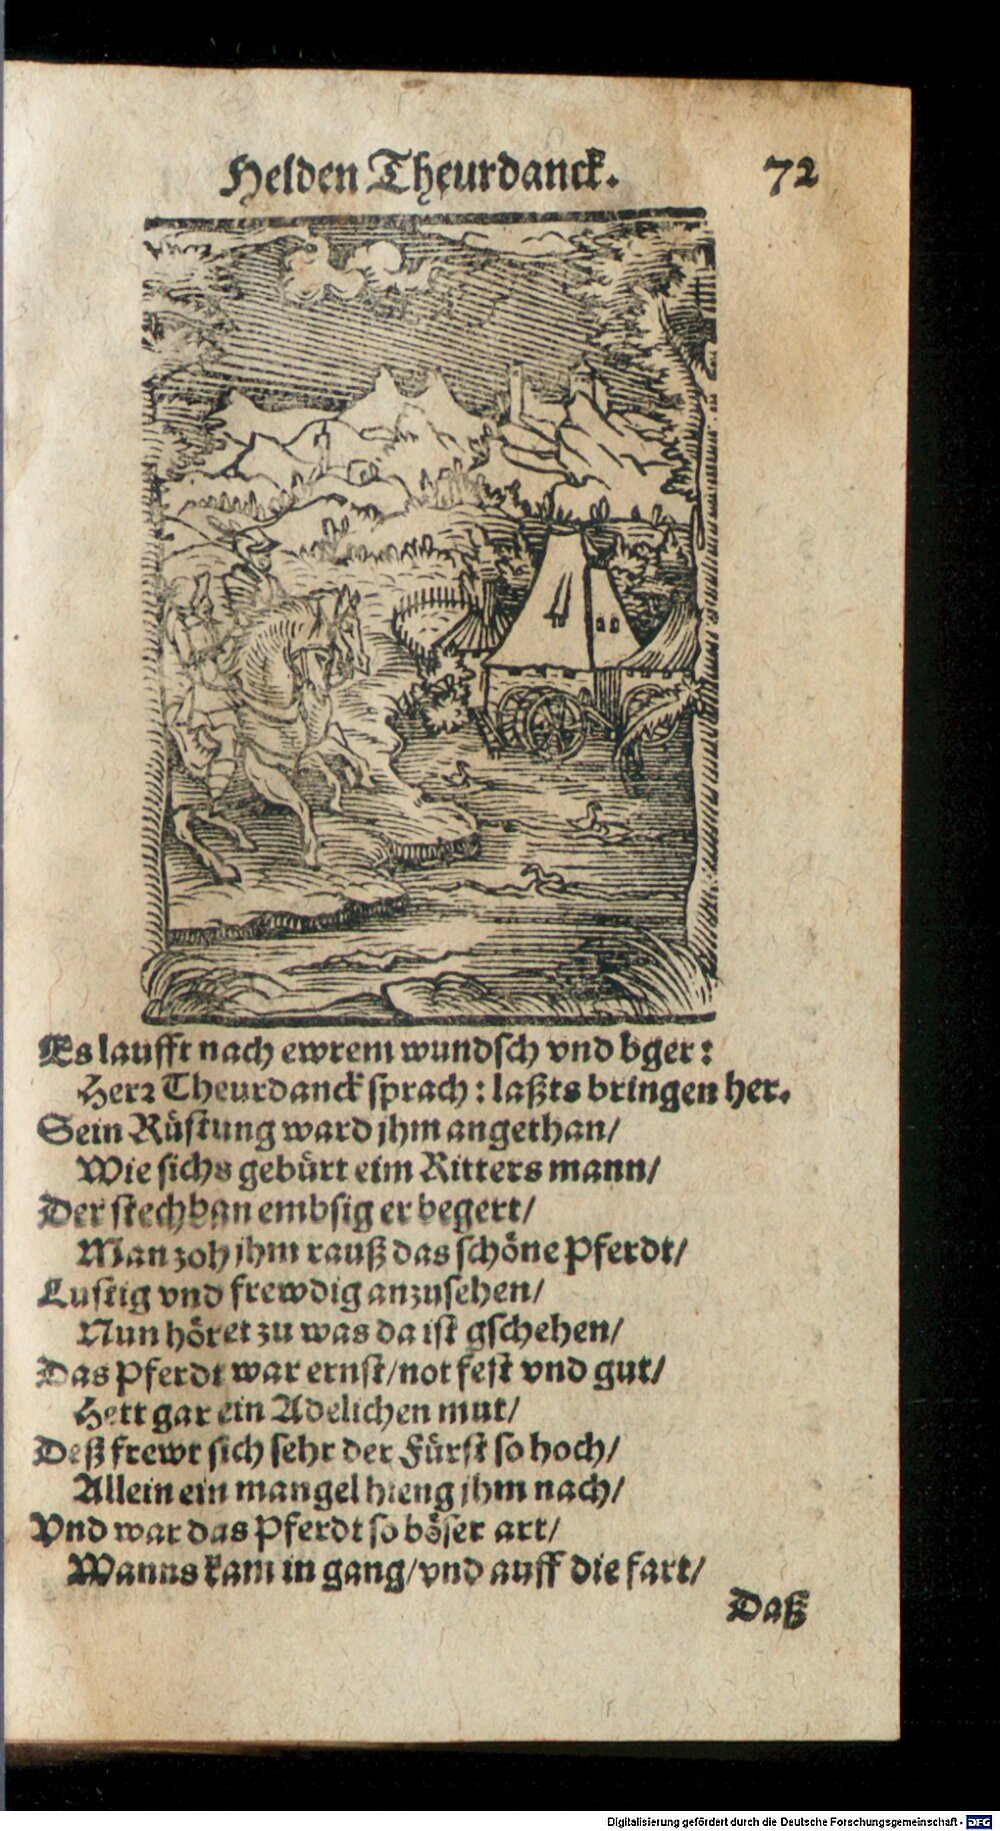 Helden Theurdanck. 72
Es laufft nach ewrem wundsch vnd bger:
Herr Theurdanck sprach: laßts bringen her.
Sein Rüstung ward jhm angethan/
Wie sichs gebürt eim Ritters mann/
Der stechban embsig er begert/
Man zoh jhm rauß das schöne Pferdt/
Lustig vnd frewdig anzusehen/
Nun höret zu was da ist gschehen/
Das Pferdt war ernst/not fest vnd gut/
Hett gar ein Adelichen mut/
Deß frewt sich sehr der Fürst so hoch/
Allein ein mangel hieng jhm nach/
Vnd war das Pferdt so böser art/
Wanns kam in gang/vnd auff die fart/
Daß
Digitalisierung gefördert durch die Deutsche Forschungsgemeinschaft - DFG